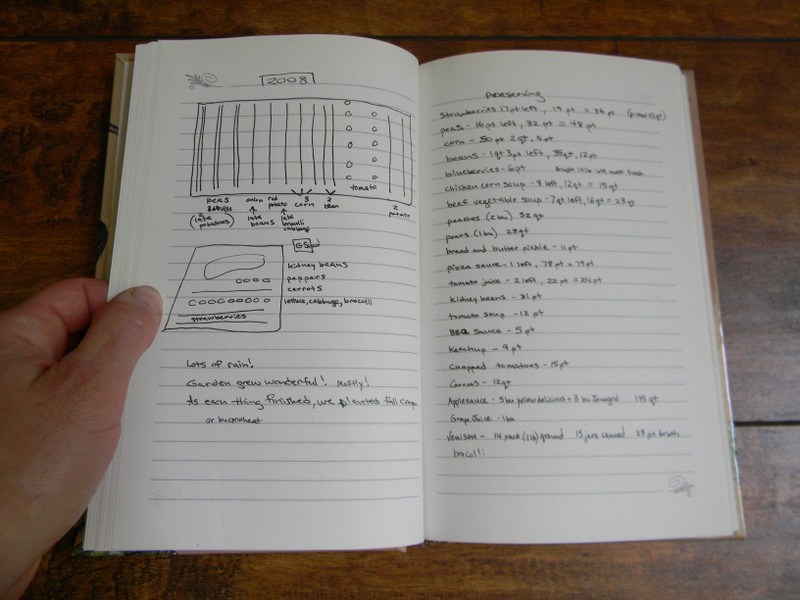 2008
tomato
peas onion red 3 2
potato corn bean 2
(late late late potato
potatoes) beans brocolli
cabbage
GS
kidney beans
peppars
carrots
lettuce, cabbage, brocolli
strawberries
Lots of rain!
Garden grew wonderful! Mostly!
As each thing finished, we planted fall crops
or buckwheat
strawberries 17 pt left, 19 pt = 36 pt
peas - 16 pt left, 32 pt = 48 pt
corn - 50 pt 2 qt, 5 pt
beans - 1 qt 3 pt left, 35 qt, 12 pt
blueberries - 6 pt
chicken corn soup - 3 left, 12 qt = 15 qt
beef vegetable soup - 7 qt left, 16 qt = 23 qt
peaches (2 bu) 52 qt
pears (1 bu) 28 qt
bread and butter pickle - 11 pt
pizza sauce - 1 left, 78 pt = 79 pt
tomato juice - 2 left, 22 pt = 24 pt
kidney beans - 31 pt
tomato soup - 12 pt
BBQ sauce - 5 pt
ketchup - 9 pt
chopped tomatoes - 15 pt
Carrots - 12 qt
Applesauce - 5 bu yellow delicious + 3 bu
Grape Juice - 1 bu
Venison - 14 pack (1 lb) ground 15 jars canned 23 pt broth
brocolli